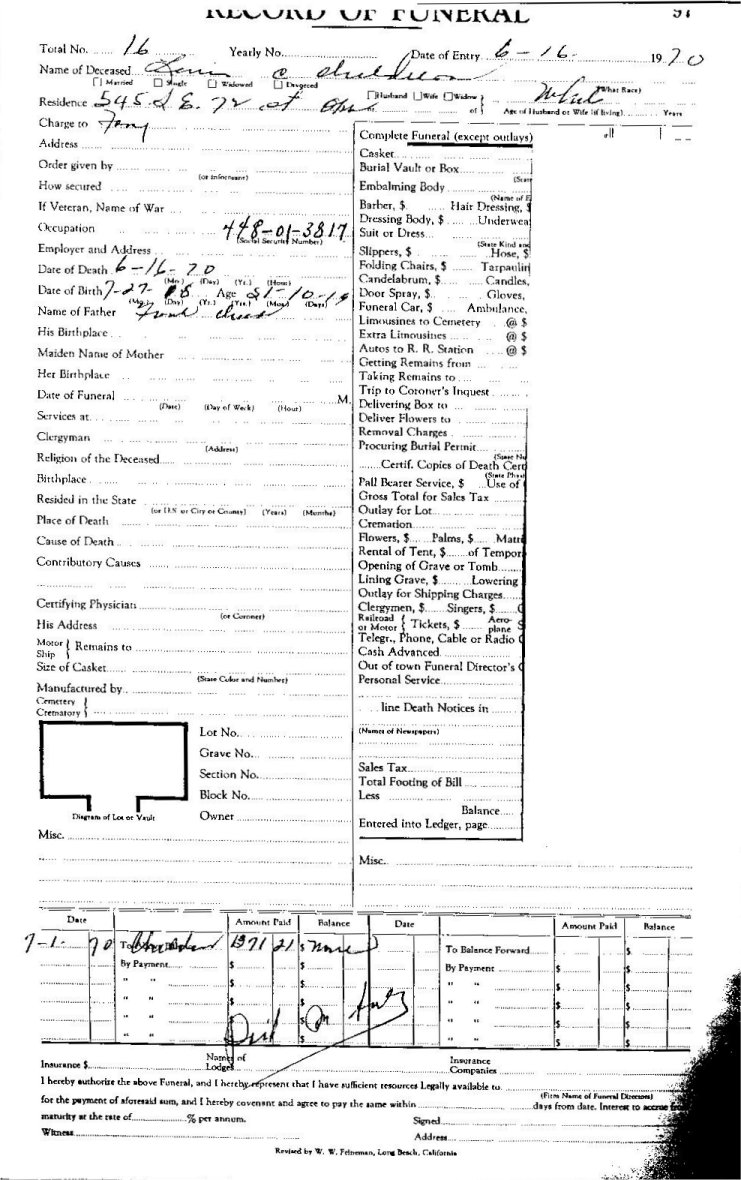 RECORD OF FUNERAL 51
Total No. 16 Yearly No. Date of Entry 6-16- 1970
Name of Deceased C
☐ Married ☐ Single ☐ Widowed ☐ Divorced ☐ Husband ☐ Wife ☐ Widow } of (What Race)
Residence 545 S E. 72 st Age of Husband or Wife (if living) Years
Charge to
Address
Order given by
(or informant)
How secured
If Veteran, Name of War
Occupation 448-01-3817
(Social Security Number)
Employer and Address
Date of Death 6-16-70
(Mo.) (Day) (Yr.) (Hour)
Date of Birth 7-27- Age
(Mo.) (Day) (Yr.) (Yrs.) (Mos.) (Days)
Name of Father
His Birthplace
Maiden Name of Mother
Her Birthplace
Date of Funeral M.
(Date) (Day of Week) (Hour)
Services at
Clergyman
(Address)
Religion of the Deceased
Birthplace
Resided in the State
(or U.S. or City or County) (Years) (Months)
Place of Death
Cause of Death
Contributory Causes
Certifying Physician
(or Coroner)
His Address
Motor Ship } Remains to
Size of Casket
(State Color and Number)
Manufactured by
Cemetery Crematory }
Lot No.
Grave No.
Section No.
Block No.
Owner
Diagram of Lot or Vault
Misc.
Complete Funeral (except outlays)
Casket
Burial Vault or Box
(State
Embalming Body
(Name of E
Barber, $ Hair Dressing, $
Dressing Body, $ Underwea
Suit or Dress
(State Kind and
Slippers, $ Hose, $
Folding Chairs, $ Tarpaulin
Candelabrum, $ Candles,
Door Spray, $ Gloves,
Funeral Car, $ Ambulance,
Limousines to Cemetery @ $
Extra Limousines @ $
Autos to R. R. Station @ $
Getting Remains from
Taking Remains to
Trip to Coroner's Inquest
Delivering Box to
Deliver Flowers to
Removal Charges
Procuring Burial Permit
(State Nu
Certif. Copies of Death Cert
Pall Bearer Service, $ Use of
Gross Total for Sales Tax
Outlay for Lot
Cremation
Flowers, $ Palms, $ Matti
Rental of Tent, $ of Tempor
Opening of Grave or Tomb
Lining Grave, $ Lowering
Outlay for Shipping Charges
Clergymen, $ Singers, $
Railroad or Motor { Tickets, $ Aero- plane
Telegr., Phone, Cable or Radio
Cash Advanced
Out of town Funeral Director's
Personal Service
line Death Notices in
(Names of Newspapers)
Sales Tax
Total Footing of Bill
Less
Balance
Entered into Ledger, page
Misc.
Date Amount Paid Balance Date Amount Paid Balance
7-1- 70 To 1371 21 $ none To Balance Forward $
By Payment $ By Payment $ $
" " $ " " $ $
" " $ " " $ $
" " $ $ " " $ $
" " $ " "
Insurance $ Names of Lodges Insurance Companies
I hereby authorize the above Funeral, and I hereby represent that I have sufficient resources Legally available to
(Firm Name of Funeral Directors)
for the payment of aforesaid sum, and I hereby covenant and agree to pay the same within days from date. Interest to accrue
maturity at the rate of % per annum. Signed
Witness Address
Revised by W. W. Feineman, Long Beach, California